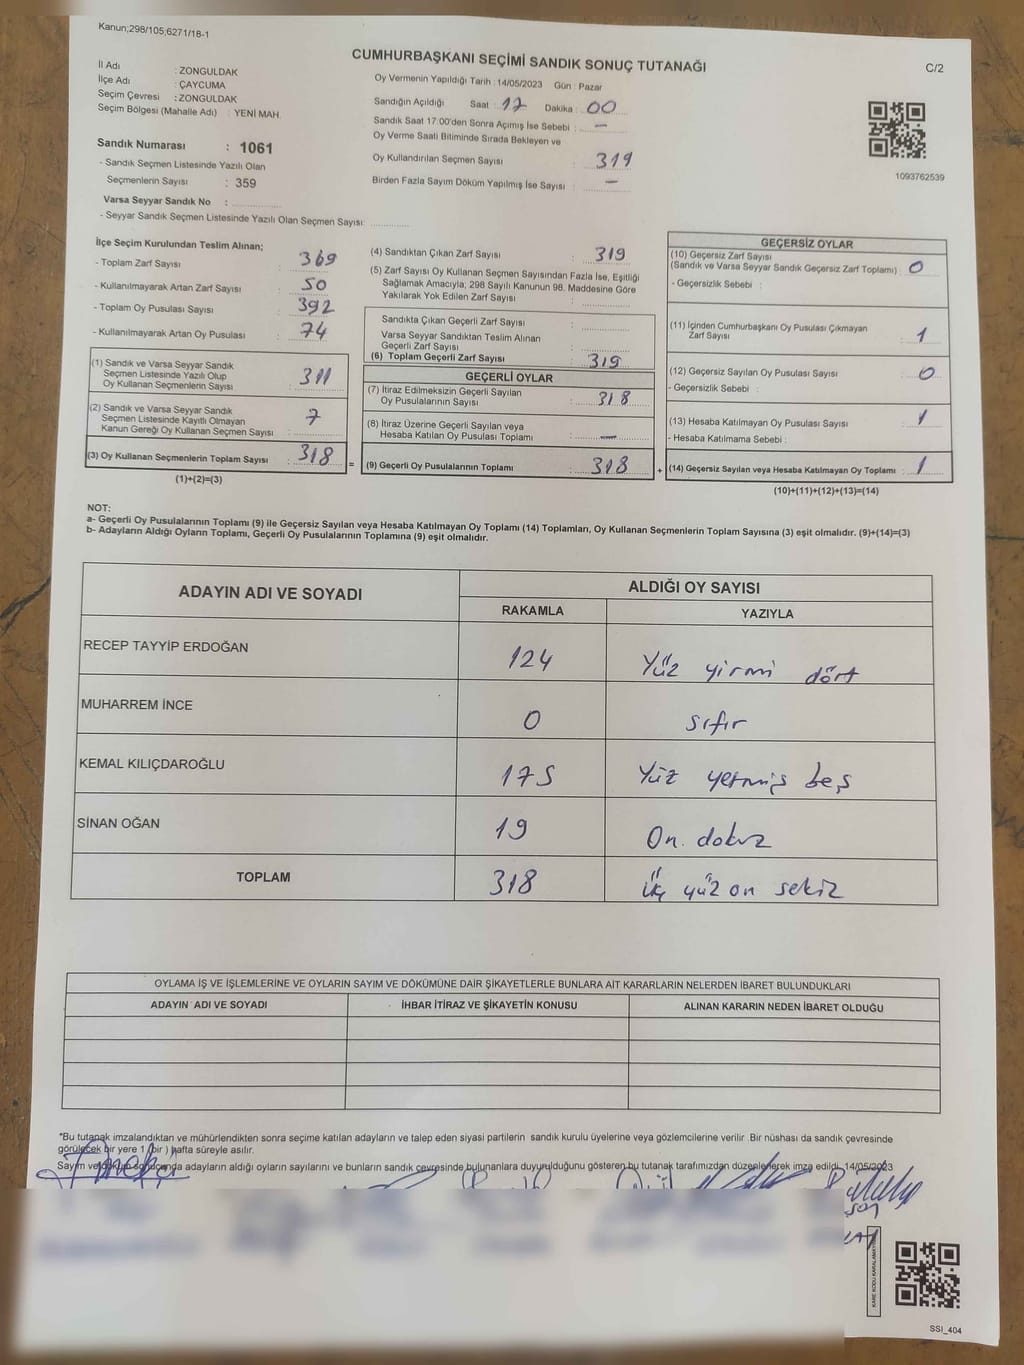 Kanun;298/105;6271/18-1
CUMHURBAŞKANI SEÇİMİ SANDIK SONUÇ TUTANAĞI
C/2
İl Adı : ZONGULDAK
İlçe Adı : ÇAYCUMA
Seçim Çevresi : ZONGULDAK
Seçim Bölgesi (Mahalle Adı) : YENİ MAH.
Sandık Numarası : 1061
- Sandık Seçmen Listesinde Yazılı Olan
Seçmenlerin Sayısı : 359
Varsa Seyyar Sandık No :
- Seyyar Sandık Seçmen Listesinde Yazılı Olan Seçmen Sayısı:
Oy Vermenin Yapıldığı Tarih : 14/05/2023 Gün : Pazar
Sandığın Açıldığı Saat : 17 Dakika : 00
Sandık Saat 17:00'den Sonra Açımış İse Sebebi : —
Oy Verme Saati Bitiminde Sırada Bekleyen ve
Oy Kullandırılan Seçmen Sayısı : 319
Birden Fazla Sayım Döküm Yapılmış İse Sayısı : —
1093762539
İlçe Seçim Kurulundan Teslim Alınan;
- Toplam Zarf Sayısı : 369
- Kullanılmayarak Artan Zarf Sayısı : 50
- Toplam Oy Pusulası Sayısı : 392
- Kullanılmayarak Artan Oy Pusulası : 74
(1) Sandık ve Varsa Seyyar Sandık
Seçmen Listesinde Yazılı Olup
Oy Kullanan Seçmenlerin Sayısı : 311
(2) Sandık ve Varsa Seyyar Sandık
Seçmen Listesinde Kayıtlı Olmayan
Kanun Gereği Oy Kullanan Seçmen Sayısı : 7
(3) Oy Kullanan Seçmenlerin Toplam Sayısı : 318
(1)+(2)=(3)
(4) Sandıktan Çıkan Zarf Sayısı : 319
(5) Zarf Sayısı Oy Kullanan Seçmen Sayısından Fazla İse, Eşitliği
Sağlamak Amacıyla; 298 Sayılı Kanunun 98. Maddesine Göre
Yakılarak Yok Edilen Zarf Sayısı :
Sandıkta Çıkan Geçerli Zarf Sayısı :
Varsa Seyyar Sandıktan Teslim Alınan
Geçerli Zarf Sayısı :
(6) Toplam Geçerli Zarf Sayısı : 319
GEÇERLİ OYLAR
(7) İtiraz Edilmeksizin Geçerli Sayılan
Oy Pusulalarının Sayısı : 318
(8) İtiraz Üzerine Geçerli Sayılan veya
Hesaba Katılan Oy Pusulası Toplamı : —
= (9) Geçerli Oy Pusulalarının Toplamı : 318
GEÇERSİZ OYLAR
(10) Geçersiz Zarf Sayısı
(Sandık ve Varsa Seyyar Sandık Geçersiz Zarf Toplamı) : 0
- Geçersizlik Sebebi :
(11) İçinden Cumhurbaşkanı Oy Pusulası Çıkmayan
Zarf Sayısı : 1
(12) Geçersiz Sayılan Oy Pusulası Sayısı : 0
- Geçersizlik Sebebi :
(13) Hesaba Katılmayan Oy Pusulası Sayısı : 1
- Hesaba Katılmama Sebebi :
+ (14) Geçersiz Sayılan veya Hesaba Katılmayan Oy Toplamı : 1
(10)+(11)+(12)+(13)=(14)
NOT:
a- Geçerli Oy Pusulalarının Toplamı (9) ile Geçersiz Sayılan veya Hesaba Katılmayan Oy Toplamı (14) Toplamları, Oy Kullanan Seçmenlerin Toplam Sayısına (3) eşit olmalıdır. (9)+(14)=(3)
b- Adayların Aldığı Oyların Toplamı, Geçerli Oy Pusulalarının Toplamına (9) eşit olmalıdır.
ADAYIN ADI VE SOYADI ALDIĞI OY SAYISI
RAKAMLA YAZIYLA
RECEP TAYYİP ERDOĞAN 124 Yüz yirmi dört
MUHARREM İNCE 0 sıfır
KEMAL KILIÇDAROĞLU 175 Yüz yetmiş beş
SİNAN OĞAN 19 On dokuz
TOPLAM 318 Üç yüz on sekiz
OYLAMA İŞ VE İŞLEMLERİNE VE OYLARIN SAYIM VE DÖKÜMÜNE DAİR ŞİKAYETLERLE BUNLARA AİT KARARLARIN NELERDEN İBARET BULUNDUKLARI
ADAYIN ADI VE SOYADI İHBAR İTİRAZ VE ŞİKAYETİN KONUSU ALINAN KARARIN NEDEN İBARET OLDUĞU
*Bu tutanak imzalandıktan ve mühürlendikten sonra seçime katılan adayların ve talep eden siyasi partilerin sandık kurulu üyelerine veya gözlemcilerine verilir. Bir nüshası da sandık çevresinde
görülecek bir yere 1 (bir) hafta süreyle asılır.
Sayım ve döküm sonucunda adayların aldığı oyların sayılarını ve bunların sandık çevresinde bulunanlara duyurulduğunu gösteren bu tutanak tarafımızdan düzenlenerek imza edildi. 14/05/2023
SSI_404